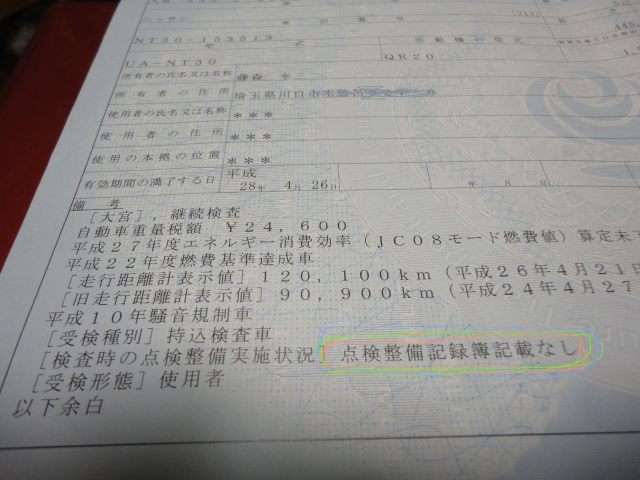 ニッサン
NT30-153513
型 式
UA-NT30
QR20
所有者の氏名又は名称
所有者の住所
埼玉県川口市
使用者の氏名又は名称 ***
使用者の住所 ***
使用の本拠の位置 ***
有効期間の満了する日 平成 28年 4月 26日
年 月 日
備 考
[大宮], 継続検査
自動車重量税額 ¥24,600
平成27年度エネルギー消費効率(JC08モード燃費値)算定未
平成22年度燃費基準達成車
[走行距離計表示値] 120,100km (平成26年4月21日
[旧走行距離計表示値] 90,900km (平成24年4月27
平成10年騒音規制車
[受検種別] 持込検査車
[検査時の点検整備実施状況] 点検整備記録簿記載なし
[受検形態] 使用者
以下余白